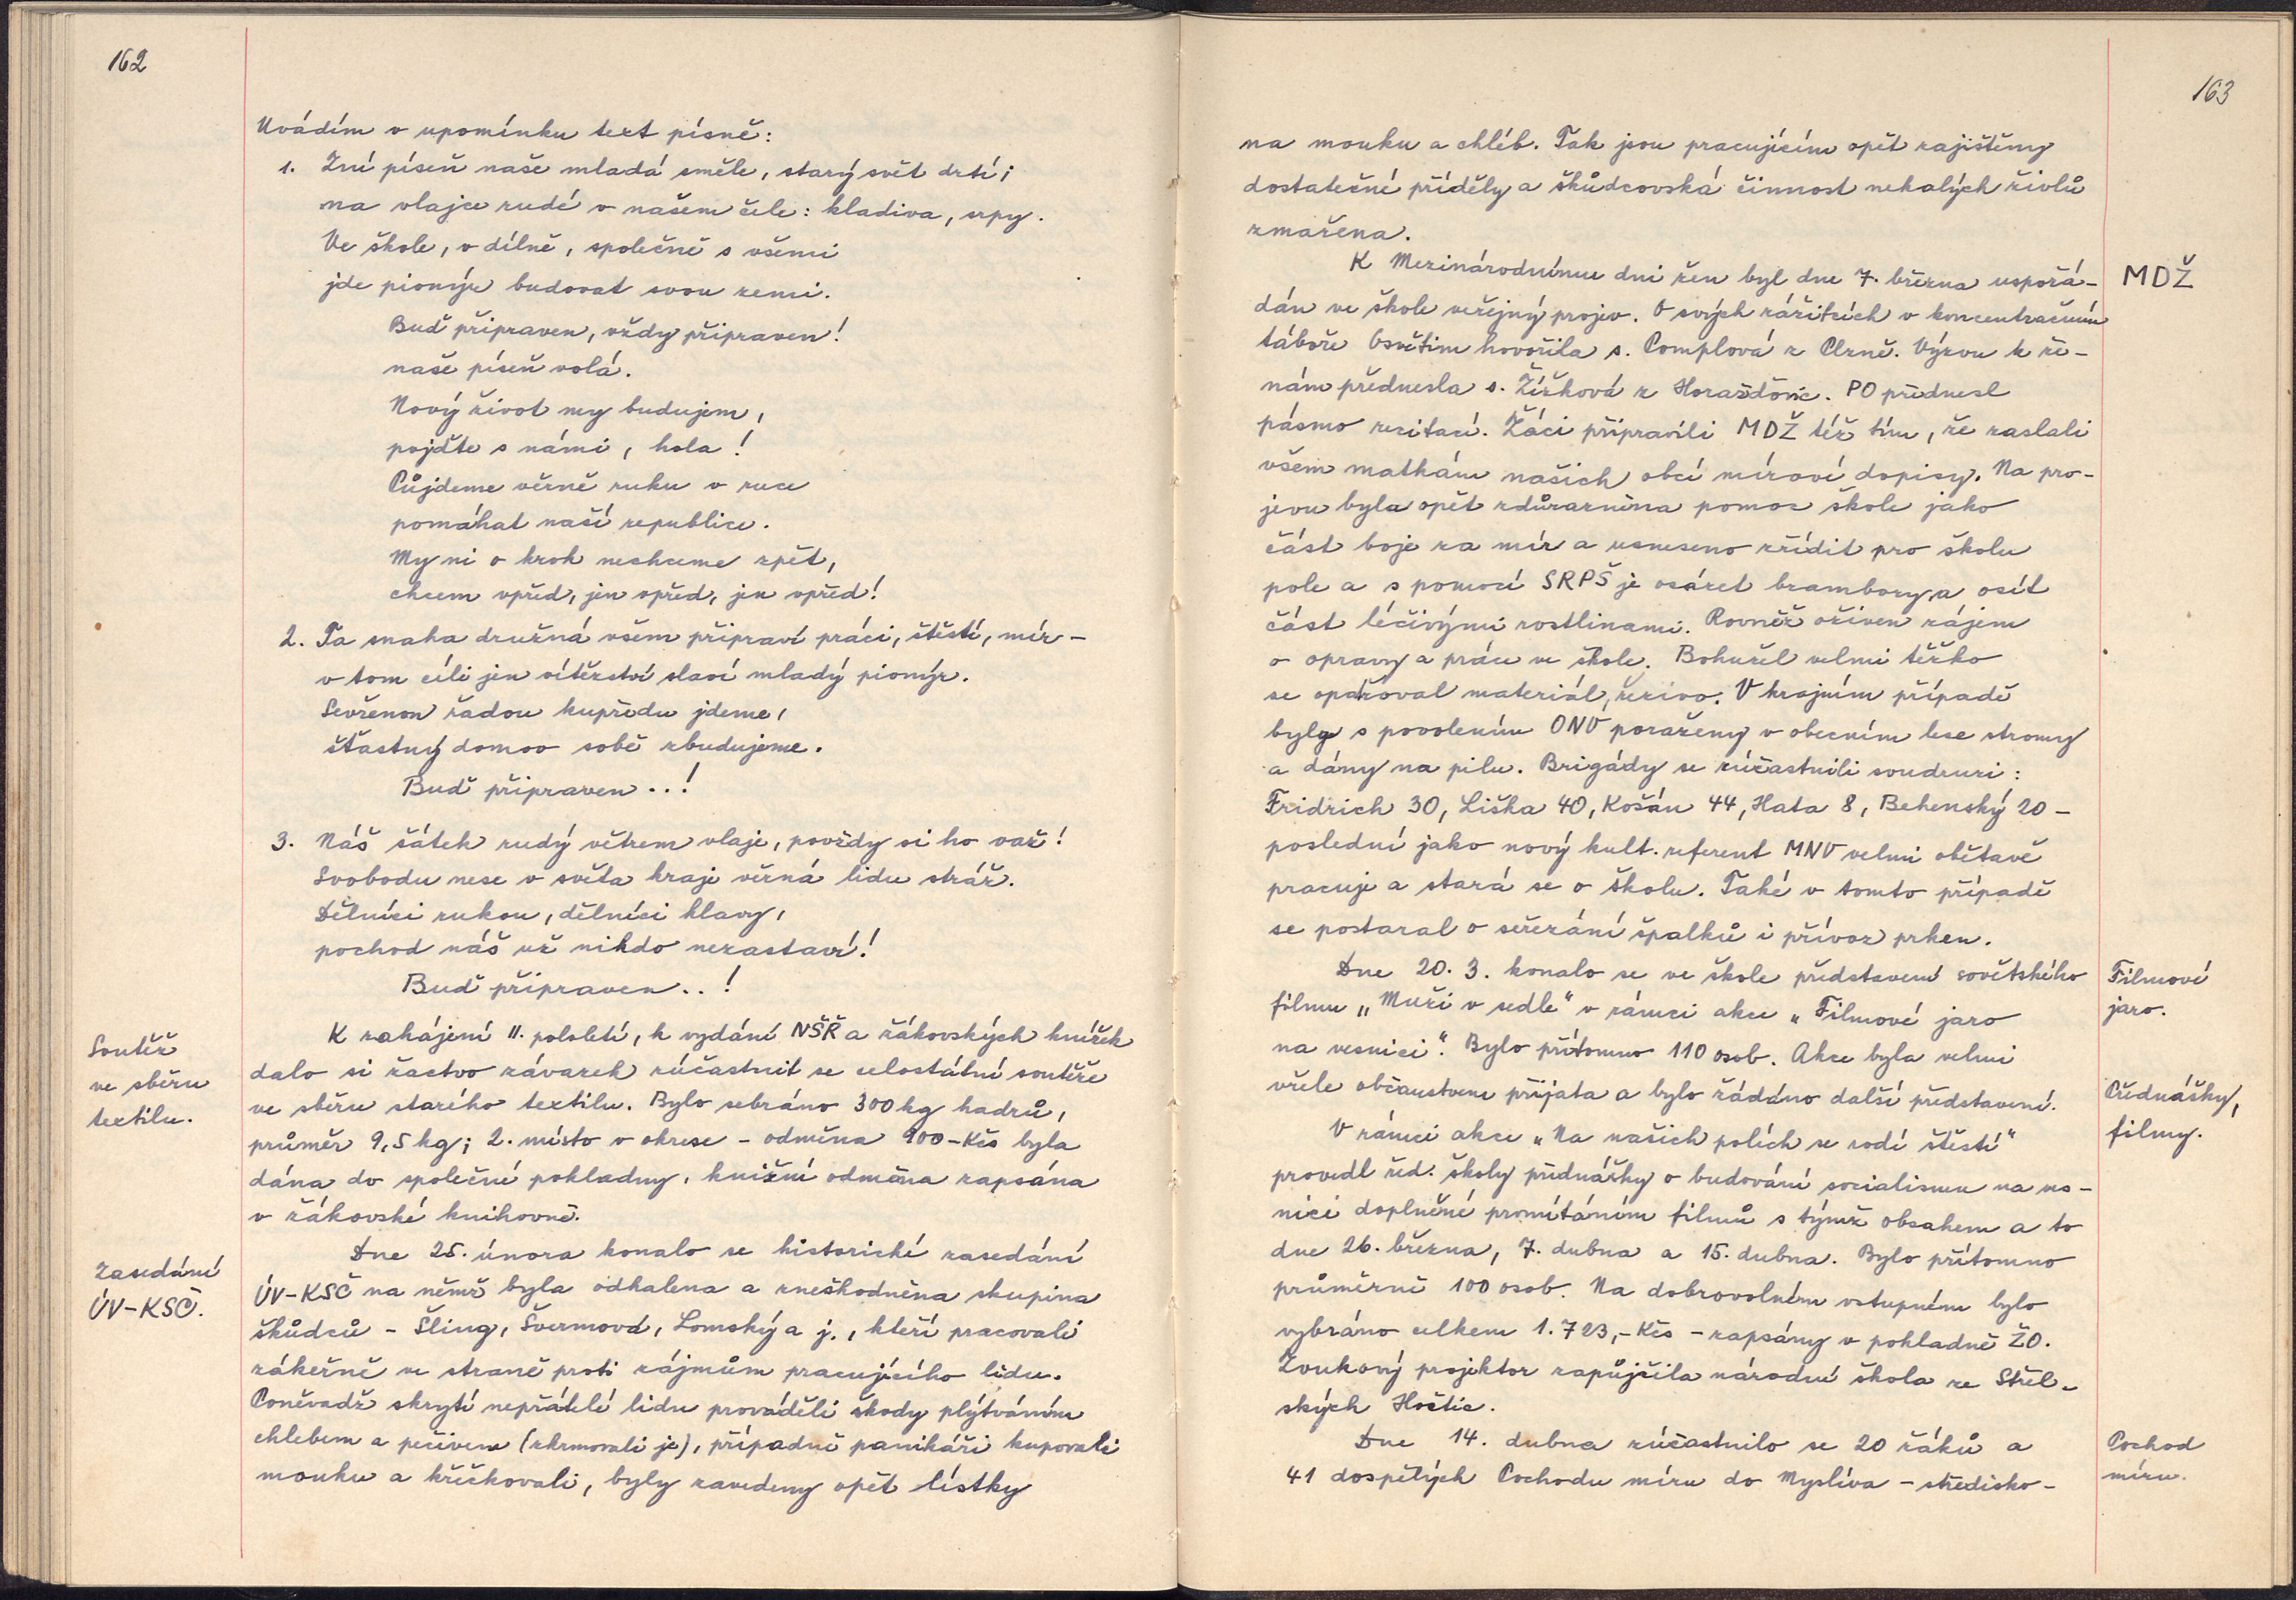 162
Uvádím v upomínku text písně:
1. Zní píseň naše mladá směle, starý svět drtí;
na vlajce rudé v našem čele: kladiva, srpy.
Ve škole, v dílně, společně s všemi
jde pionýr budovat svou zemi.
Buď připraven, vždy připraven!
naše píseň volá.
Nový život my budujem,
pojďte s námi, hola!
Půjdeme věrně ruku v ruce
pomáhat naší republice.
My ni o krok nechceme zpět,
chcem vpřed, jen vpřed, jen vpřed!
2. Ta snaha družná všem připraví práci, štěstí, mír –
v tom cíli jen vítězství slaví mladý pionýr.
Sevřenou řadou kupředu jdeme,
šťastný domov sobě zbudujeme.
Buď připraven..!
3. Náš šátek rudý větrem vlaje, povždy si ho važ!
Svobodu nese v světa kraje věrná lidu stráž.
Dělníci rukou, dělníci hlavy,
pochod náš už nikdo nezastaví!
Buď připraven..!
Soutěž
ve sběru
textilu.
K zahájení II. pololetí, k vydání NŠŘ a žákovských knížek
dalo si žactvo závazek zúčastnit se celostátní soutěže
ve sběru starého textilu. Bylo sebráno 300 kg hadrů,
průměr 9,5 kg; 2. místo v okrese – odměna 900–Kčs byla
dána do společné pokladny, knižní odměna zapsána
v žákovské knihovně.
Zasedání
ÚV-KSČ.
Dne 25. února konalo se historické zasedání
ÚV-KSČ na němž byla odhalena a zneškodněna skupina
škůdců – Šling, Švermová, Lomský a j., kteří pracovali
zákeřně ve straně proti zájmům pracujícího lidu.
Poněvadž skrytí nepřátelé lidu prováděli škody plýtváním
chlebem a pečivem (zkrmovali je), případně panikáři kupovali
mouku a křečkovali, byly zavedeny opět lístky
163
na mouku a chléb. Tak jsou pracujícím opět zajištěny
dostatečné příděly a škůdcovská činnost nekalých živlů
zmařena.
MDŽ
K Mezinárodnímu dni žen byl dne 7. března uspořá-
dán ve škole veřejný projev. O svých zážitcích v koncentračním
táboře Osvětim hovořila s. Pomplová z Plzně. Výzvu k že-
nám přednesla s. Žižková z Horažďovic. PO přednesl
pásmo recitací. Žáci připravili MDŽ též tím, že zaslali
všem matkám našich obcí mírové dopisy. Na pro-
jevu byla opět zdůrazněna pomoc škole jako
část boje za mír a usneseno zřídit pro školu
pole a s pomocí SRPŠ je osázet brambory a osít
část léčivými rostlinami. Rovněž oživen zájem
o opravy a práce ve škole. Bohužel velmi těžko
se opařoval materiál, řezivo. V krajním případě
byly s povolením ONV poraženy v obecním lese stromy
a dány na pilu. Brigády se zúčastnili soudruzi:
Fridrich 30, Liška 40, Košán 44, Hata 8, Behenský 20 –
poslední jako nový kult. referent MNV velmi obětavě
pracuje a stará se o školu. Také v tomto případě
se postaral o seřezání špalků i přívoz prken.
Filmové
jaro.
Dne 20. 3. konalo se ve škole představení sovětského
filmu „Muži v sedle" v rámci akce „Filmové jaro
na vesnici". Bylo přítomno 110 osob. Akce byla velmi
vřele občanstvem přijata a bylo žádáno další představení.
Přednášky,
filmy.
V rámci akce „Na našich polích se rodí štěstí"
provedl řed. školy přednášky o budování socialismu na ves-
nici doplněné promítáním filmů s týmž obsahem a to
dne 26. března, 7. dubna a 15. dubna. Bylo přítomno
průměrně 100 osob. Na dobrovolném vstupném bylo
vybráno celkem 1.723,–Kčs – zapsány v pokladně ŽO.
Zvukový projektor zapůjčila národní škola ze Střel-
ských Hoštic.
Pochod
míru.
Dne 14. dubna zúčastnilo se 20 žáků a
41 dospělých Pochodu míru do Myslíva – středisko-